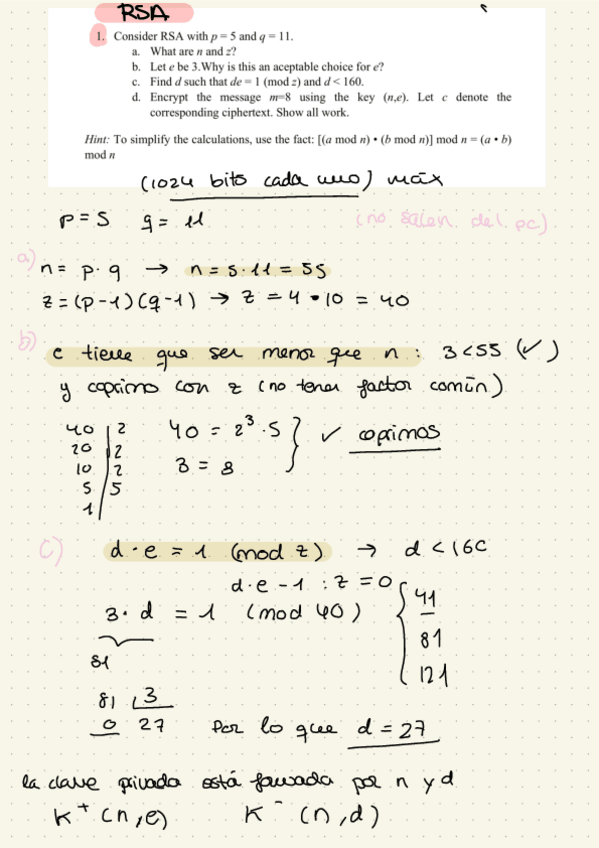 RSA
1. Consider RSA with p = 5 and q = 11.
a. What are n and z?
b. Let e be 3.Why is this an aceptable choice for e?
c. Find d such that de = 1 (mod z) and d < 160.
d. Encrypt the message m=8 using the key (n,e). Let c denote the
corresponding ciphertext. Show all work.
Hint: To simplify the calculations, use the fact: [(a mod n) • (b mod n)] mod n = (a • b)
mod n
(1024 bits cada uno) máx
p = 5 q = 11 (no salen del pc)
a)
n = p · q → n = 5 · 11 = 55
z = (p - 1) (q - 1) → z = 4 • 10 = 40
b)
e tiene que ser menor que n : 3 < 55 (✓)
y coprimo con z (no tener factor común)
40 | 2 40 = 2³ · 5 } ✓ coprimos
20 | 2
10 | 2 3 = 3
5 | 5
1 |
c) d · e = 1 (mod z) → d < 160
d · e - 1 : z = 0
3 · d = 1 (mod 40) { 41
81 81
121
81 | 3
0 27 Por lo que d = 27
la clave privada está formada por n y d
K⁺ (n, e) K⁻ (n, d)